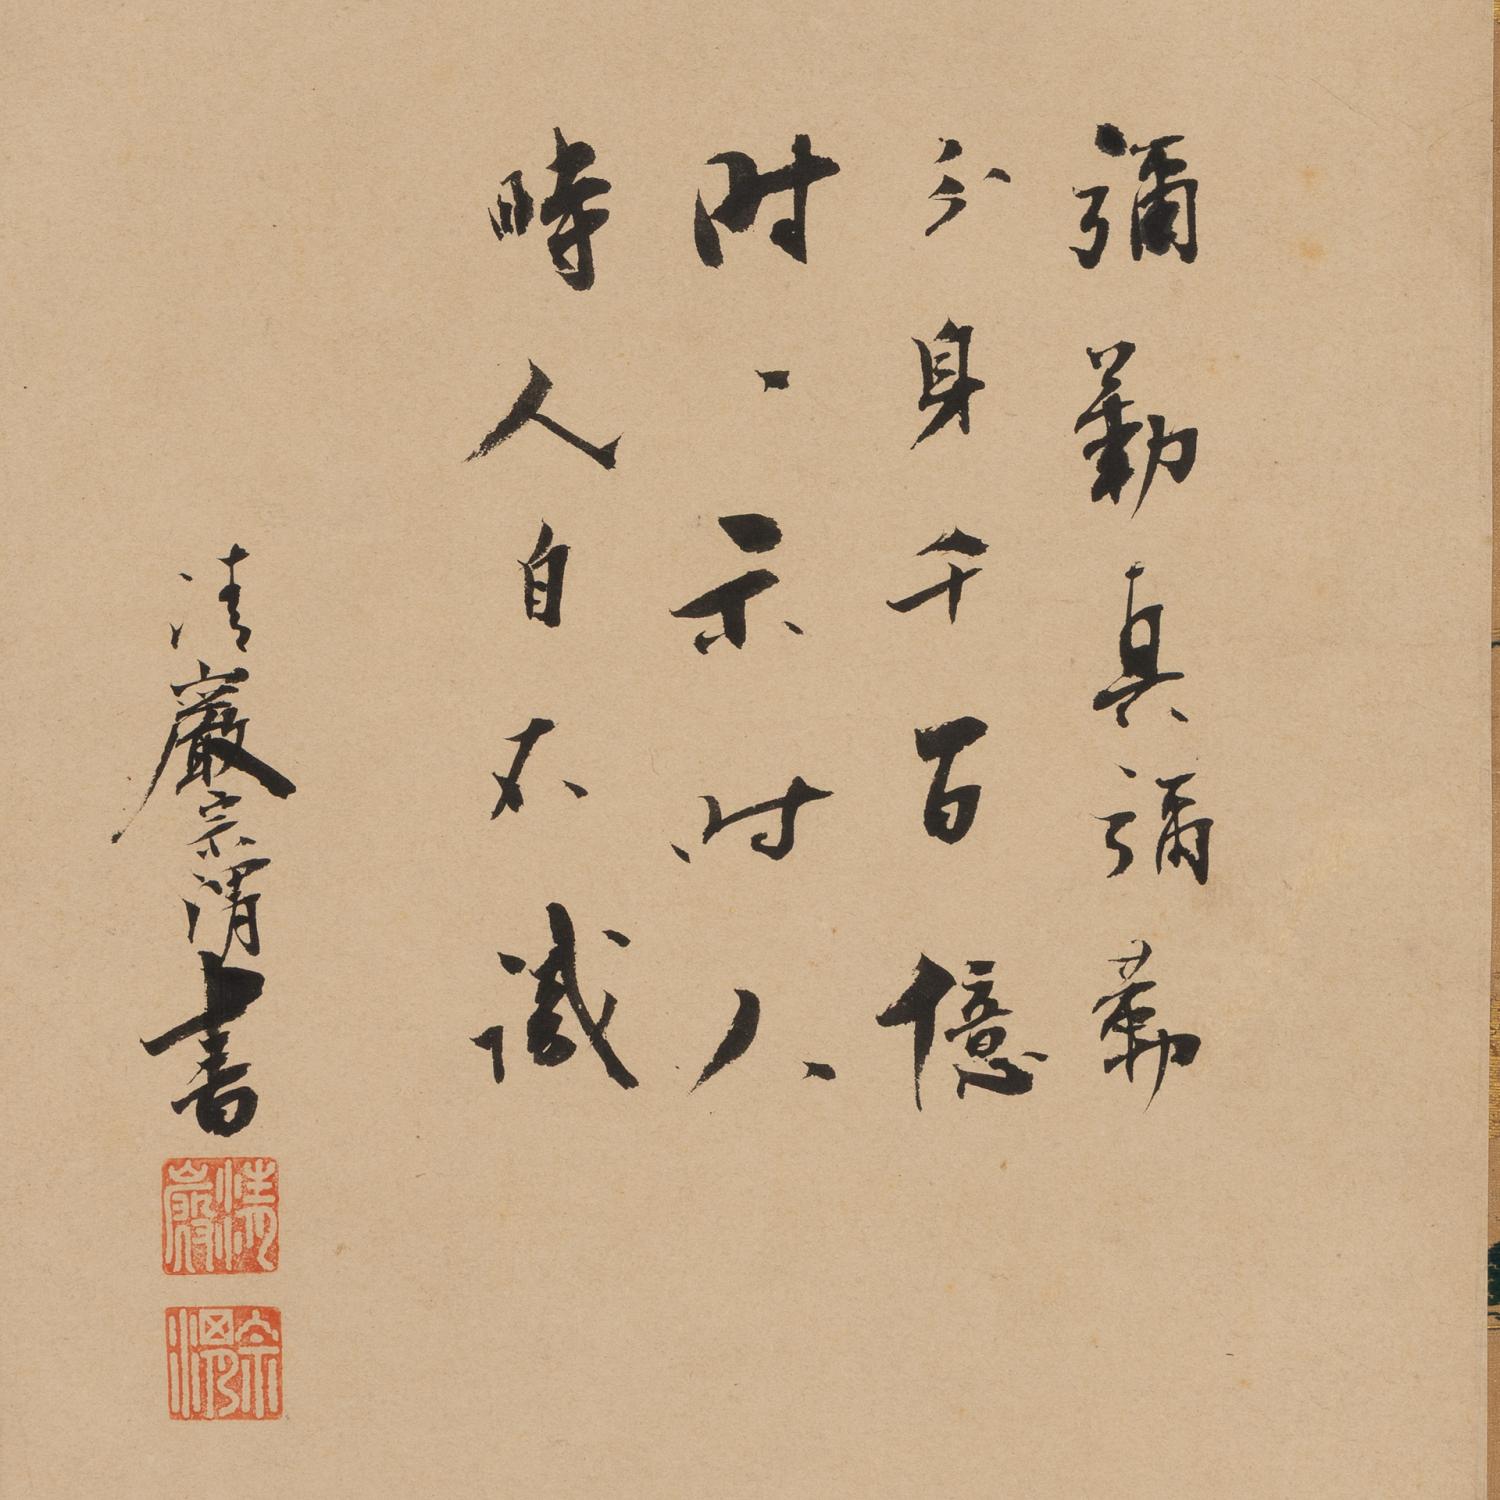 彌勒真彌勒
分身千百億
時〻示時人
時人自不識
清巖宗渭書
清巖
宗渭